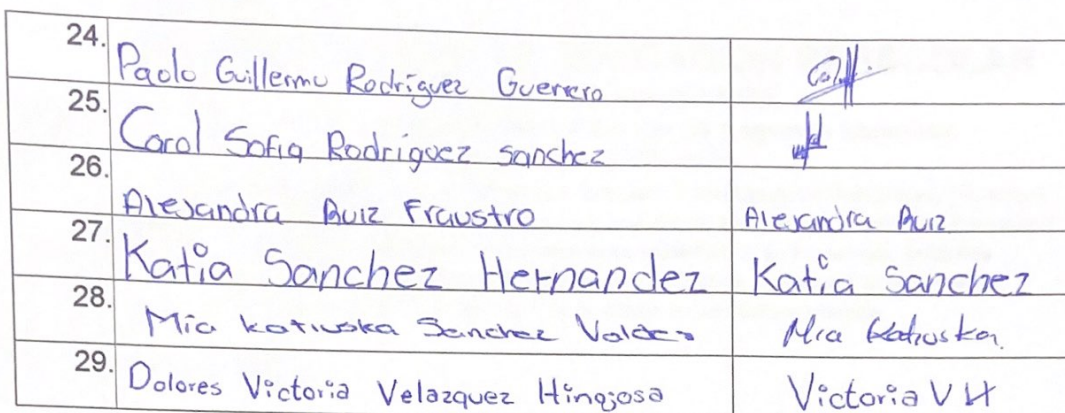 24. Paolo Guillermo Rodríguez Guerrero
25. Carol Sofia Rodríguez Sanchez
26. Alejandra Ruiz Fraustro Alejandra Ruiz
27. Katia Sanchez Hernandez Katia Sanchez
28. Mia Katiuska Sanchez Valdez Mia Katiuska
29. Dolores Victoria Velazquez Hinojosa Victoria V H